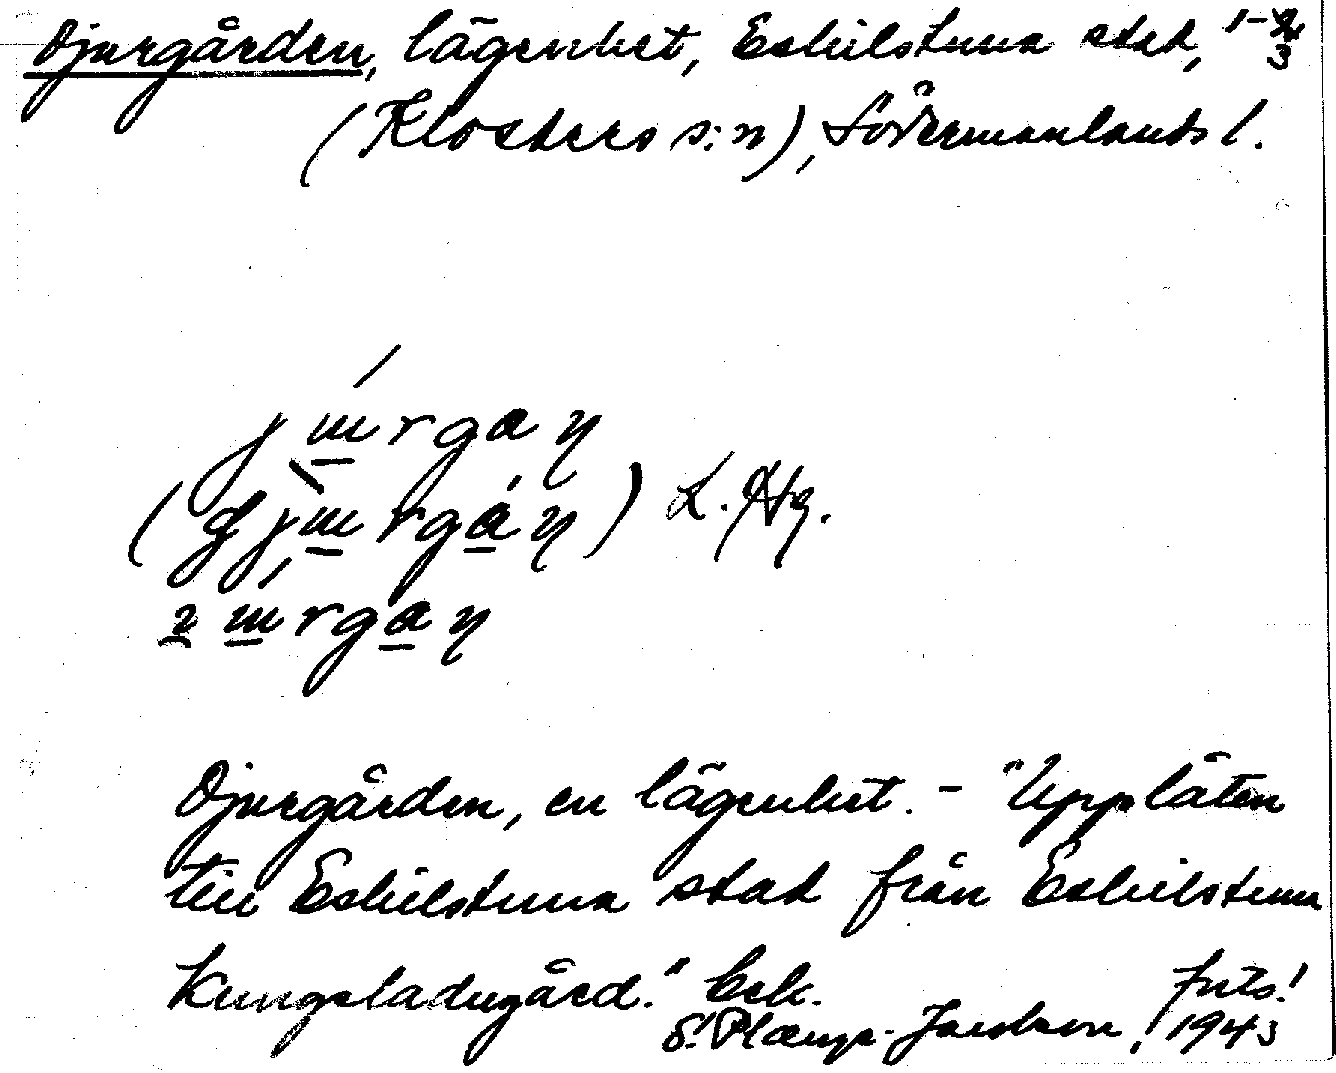 Djurgården, lägenhet, Eskilstuna stad, 1-2/3
(Klosters s:n), Södermanlands l.
jurgaɳ
(djurgaɳ) L. Hg.
2 urgaɳ
Djurgården, en lägenhet. - "Upplåten
till Eskilstuna stad från Eskilstuna
Kungsladugård." Bek. forts!
S. Plœngs- Jacobson, 1943